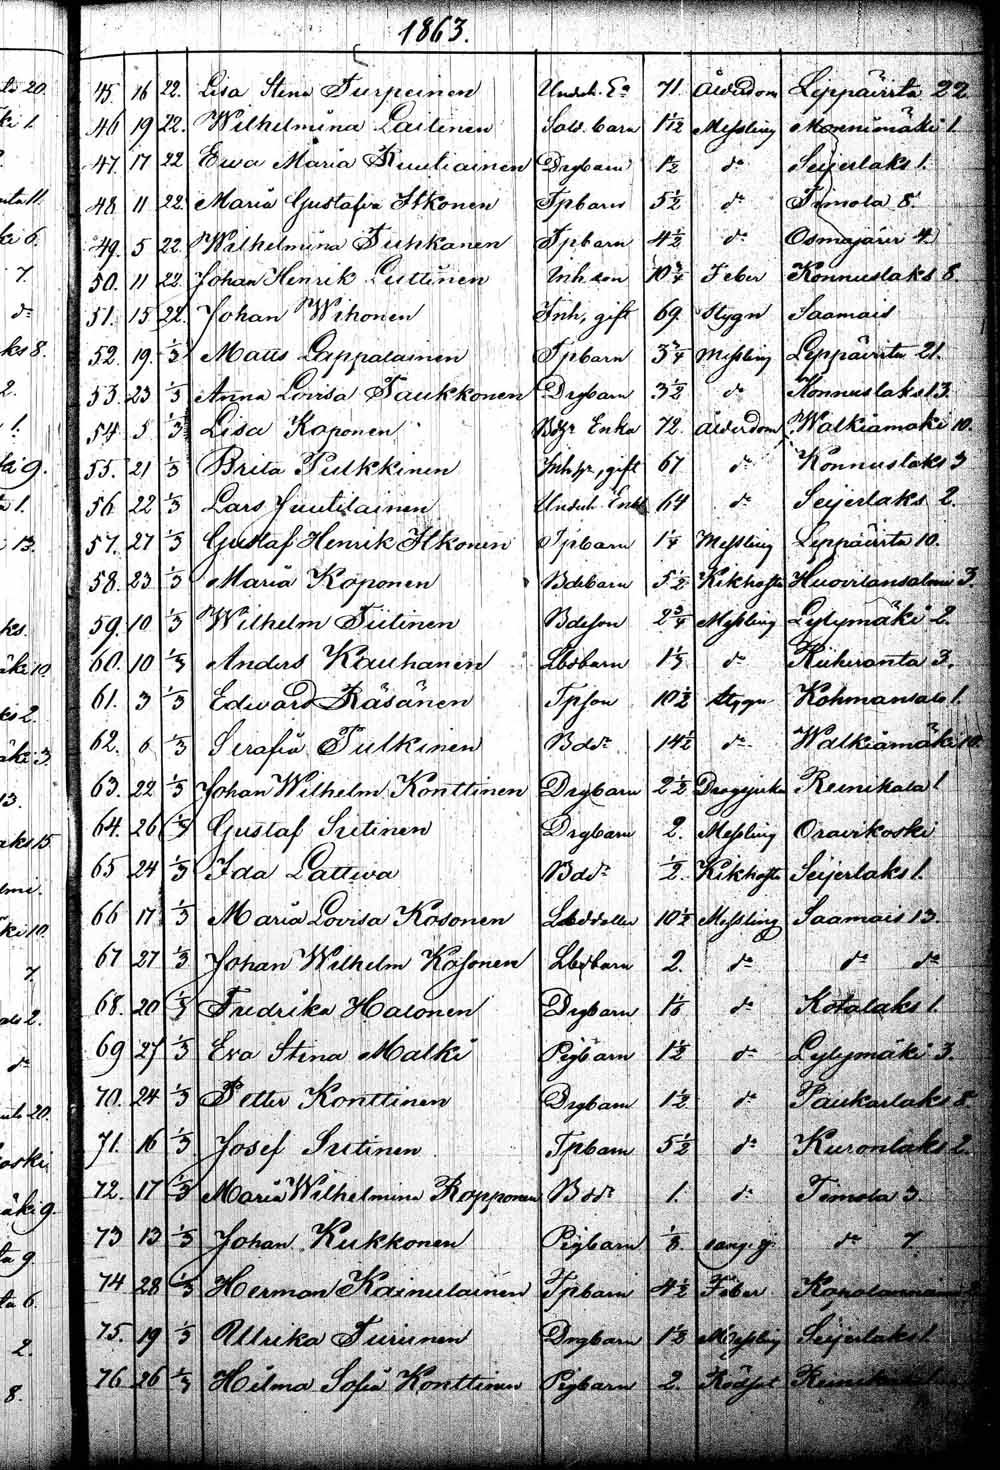 1863.
45. 16 22. Lisa Stina Turpeinen 71 Ålderdom Leppävirta 22
46 19 22. Wilhelmina Laitinen Sold. barn 1 1/12 Messling Monnimäki 1
47. 17 22 Ewa Maria Ruutiainen Drgbarn 1 1/2 do Seijerlaks 1.
48 11 22. Maria Gustafva Itkonen Tpbarn 5 1/2 do Timola 8.
49. 5 22. Wilhelmina Tuhkanen Tpbarn 4 1/2 do Osmajärvi 4.
50. 11 22. Johan Henrik Luttinen Inh. son 10 3/4 Feber Konnuslaks 8.
51. 15 22. Johan Wihonen Inh, gift 69. Stygn Saamais
52. 19. 1/3 Matts Lappalainen Tpbarn 3 3/4 Messling Leppävirta 21.
53. 23 1/3 Anna Lovisa Taukkonen Drgbarn 3 1/2 do Konnuslaks 13.
54. 5 1/3 Lisa Koponen Enka 72. Ålderdom Walkiamäki 10.
55. 21 1/3 Brita Pulkkinen gift 67 do Konnuslaks 3
56 22 1/3 Lars Juutilainen 64 do Seijerlaks 2.
57. 27 1/3 Gustaf Henrik Itkonen Tpbarn 1 1/4 Messling Leppävirta 10.
58. 23 1/3 Maria Koponen Bdebarn 5 1/2 Kikhosta Huovilansalmi 3.
59. 10 1/3 Wilhelm Tiitinen Bdeson 2 3/4 Messling Lylymäki 2.
60. 10 1/3 Anders Kauhanen Lbsbarn 1 1/3 do Riihiranta 3.
61. 3 1/3 Edward Räsänen Tpson 10 1/2 Stygn Kohmansalo 1.
62. 6 1/3 Serafia Pulkinen Bddr 14 1/2 do Walkiamäki 10.
63. 22 1/3 Johan Wilhelm Konttinen Drgbarn 2 1/2 Dragsjuka Reinikala 1
64. 26 1/3 Gustaf Sutinen Drgbarn 2. Messling Oravikoski
65 24 1/3 Ida Lattwa Bddr 1/2 Kikhosta Seijerlaks 1.
66 17 1/3 Maria Lovisa Kosonen 10 1/2 Messling Saamais 13.
67 27 1/3 Johan Wilhelm Kosonen Lbsbarn 2. do do do
68. 20 1/3 Fredrika Halonen Drgbarn do Kotalaks 1.
69 27 1/3 Eva Stina Malki Pigbarn 1 1/2 do Lylymäki 3.
70. 24 1/3 Petter Konttinen Drgbarn 1 1/2 do Paukarlaks 8.
71. 16 1/3 Josef Sutinen Tpbarn 5 1/2 do Kuronlaks 2.
72. 17 1/3 Maria Wilhelmina Ropponen Bddr 1. do Timola 3.
73 13 1/3 Johan Kukkonen Pigbarn 1/8 do 7.
74 28 1/3 Herman Kainulainen Tpbarn 4 1/2 Feber
75. 19 1/3 Ulrika Turunen Drgbarn 1 1/2 Messling Seijerlaks 1.
76 26 1/3 Hilma Sofia Konttinen Pigbarn 2. Rödsot